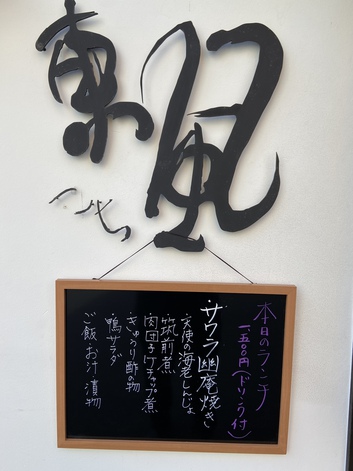 東風
こち
本日のランチ
一、五〇〇円(ドリンク付)
・サワラ幽庵焼き
・天使の海老しんじょ
・筑前煮
・肉団子ケチャップ煮
・きゅうり酢の物
・鴨サラダ
ご飯 お汁 漬物